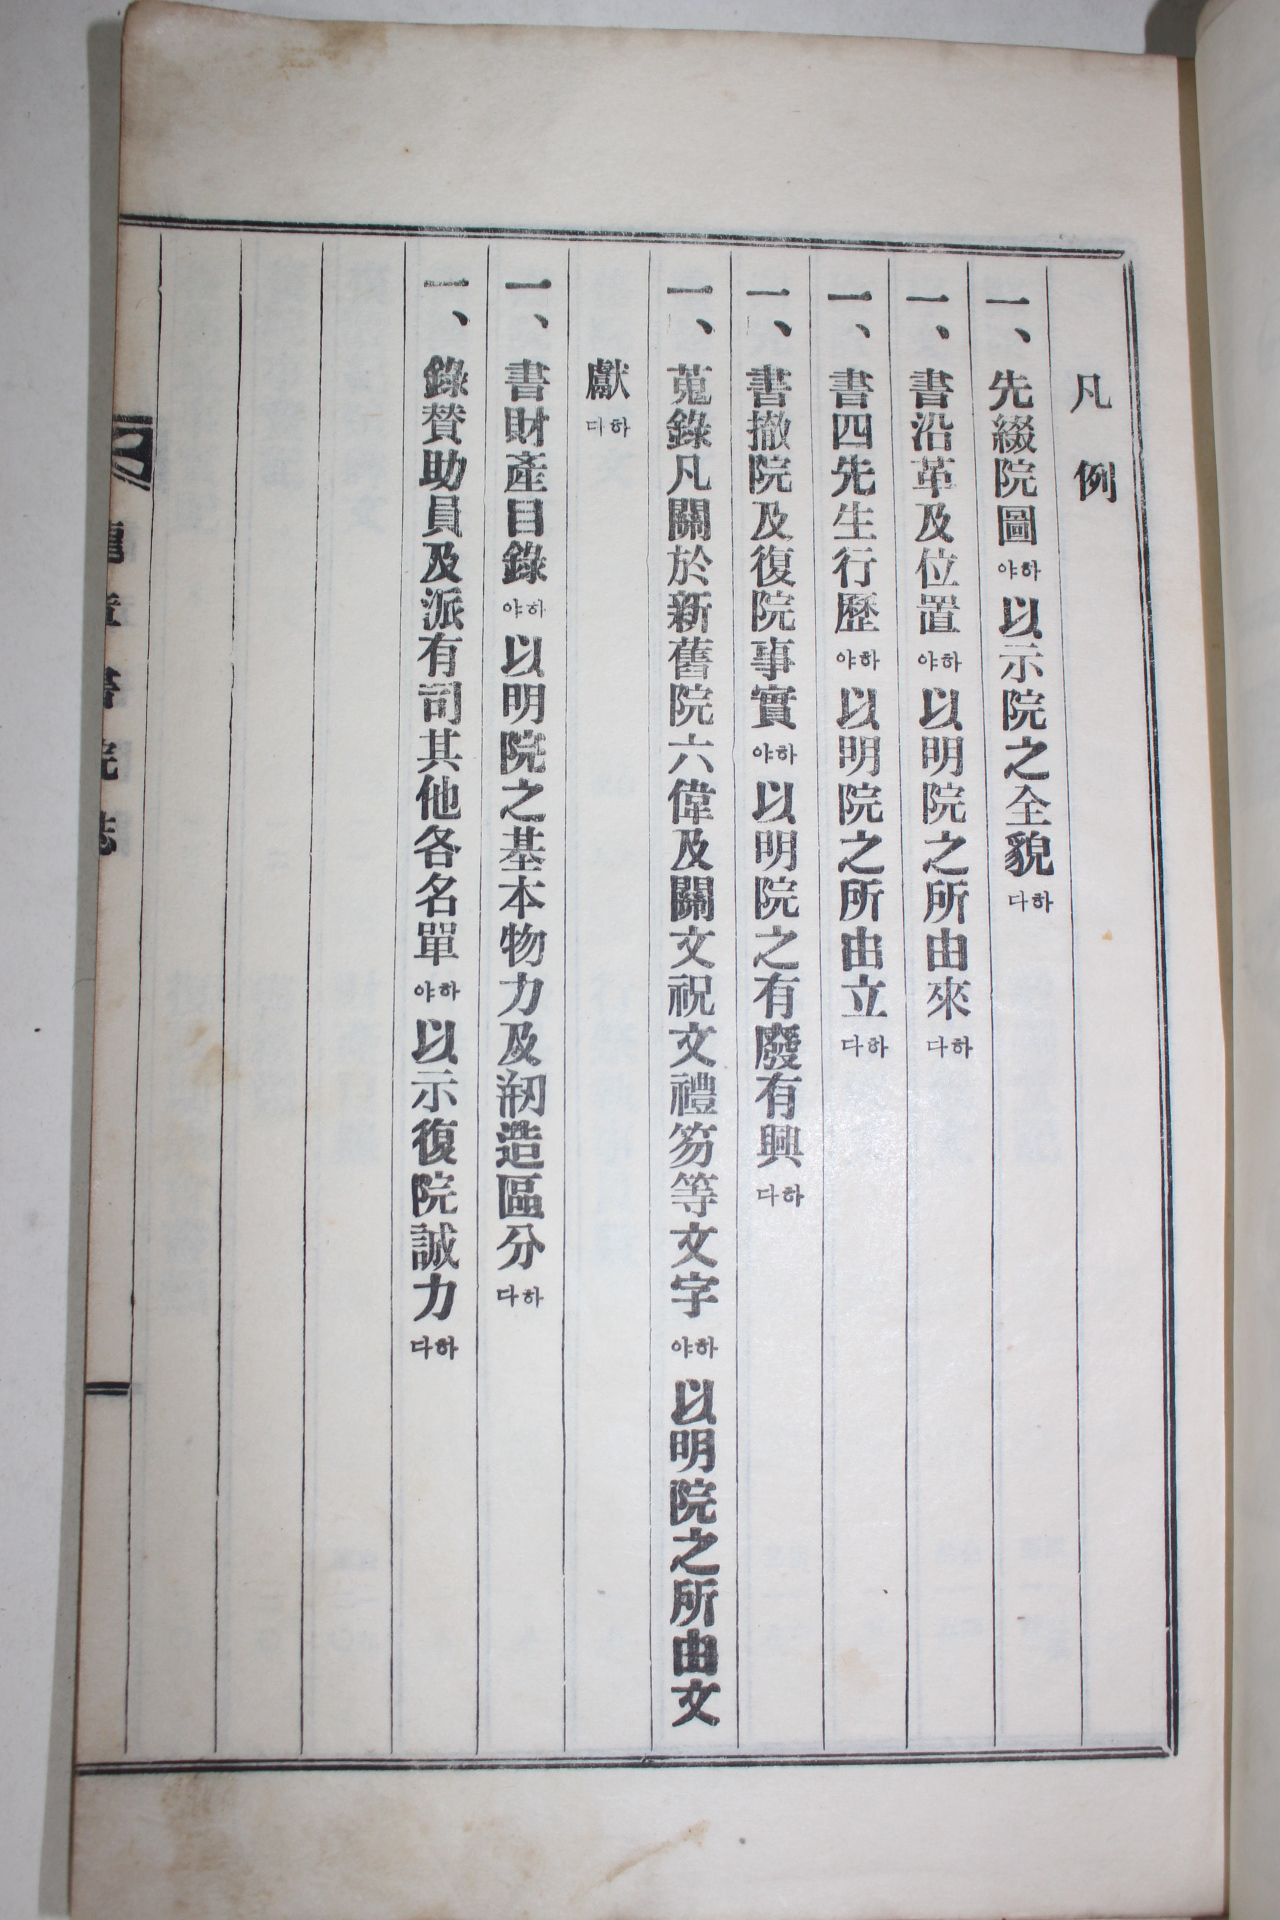 凡例
一、先綴院圖하야以示院之全貌하다
一、書沿革及位置하야以明院之所由來하다
一、書四先生行歷하야以明院之所由立하다
一、書撤院及復院事實하야以明院之有廢有興하다
一、蒐錄凡關於新舊院六偉及關文祝文禮笏等文字하야以明院之所由文
獻하다
一、書財產目錄하야以明院之基本物力及刱造區分하다
一、錄贊助員及派有司其他各名單하야以示復院誠力하다
章書院誌